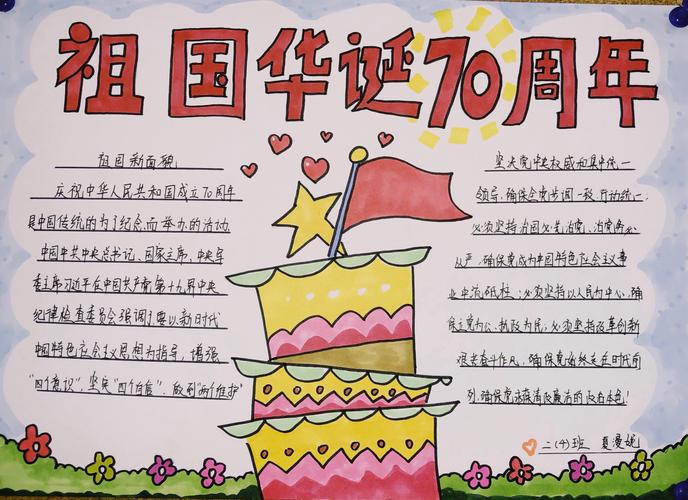 祖国华诞70周年
祖国新面貌
庆祝中华人民共和国成立70周年
是中国传统的为了纪念而举办的活动.
中国中共中央总书记、国家主席、中央军
委主席习近平在中国共产党第十九届中央
纪律检查委员会强调了要以新时代
中国特色社会主义思想为指导，增强
"四个意识"，坚定"四个自信"，做到"两个维护"
坚决党中央权威和集中统一
领导，确保全党步调一致、行动统一；
必须坚持治国必先治党、治党务必
从严，确保党成为中国特色社会主义事
业中流砥柱；必须坚持以人民为中心，确
保立党为公、执政为民；必须坚持改革创新
艰苦奋斗作风，确保党始终走在时代前
列，确保党永葆清正廉洁的政治本色！
二(4)班 夏漫妮